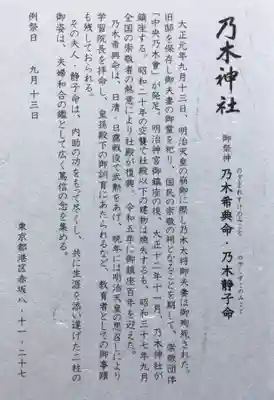 乃木神社
御祭神 乃木希典命・乃木静子命
のぎまれすけのみこと のぎしずこのみこと
大正元年九月十三日、明治天皇の崩御に際し乃木大将御夫妻は御殉死された。
旧邸を保存し御夫妻の御霊を祀り、国民の崇敬の祠となることを期して、崇敬団体
「中央乃木會」が発足。明治神宮御鎮座の後、大正十二年十一月一日、乃木神社が
鎮座する。昭和二十年の空襲で社殿以下の建物は焼失するも、昭和三十七年九月
全国の崇敬者の熱意により社殿が復興、令和五年に御鎮座百年を迎えた。
乃木希典命は、日清・日露戦役で武勲をあげ、晩年には明治天皇の思召により
学習院長を拝命し、皇孫殿下の御訓育にあたられるなど、教育者としての御事蹟
も残しておられる。
その夫人・静子命は、内助の功をもって尽くし、共に生涯を添い遂げた二柱の
御姿は、夫婦和合の鑑として広く篤信の念を集める。
例祭日 九月十三日
東京都港区赤坂八・十一・二十七